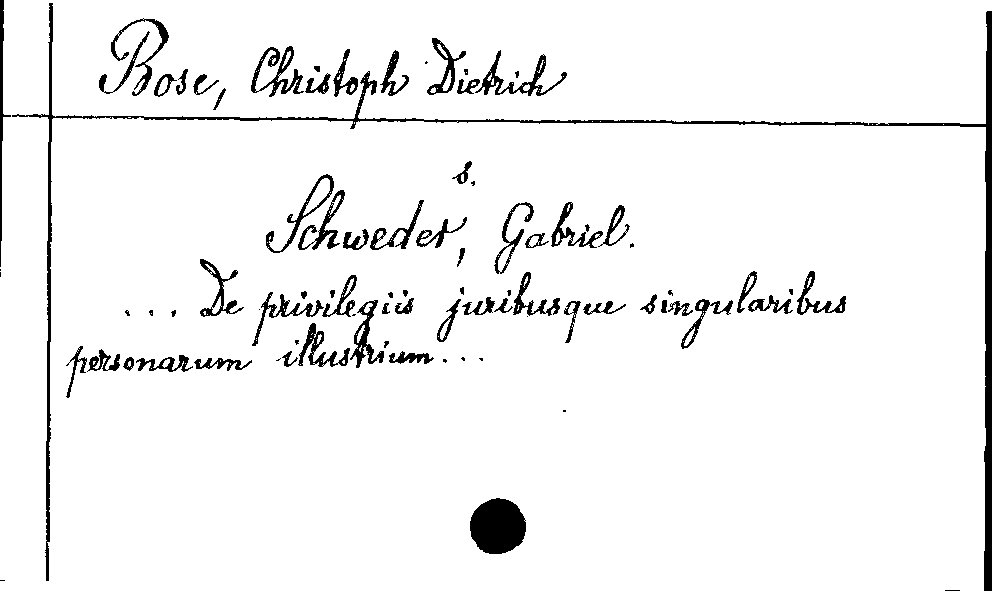 Bose, Christoph Dietrich
s.
Schweder, Gabriel.
... De privilegiis juribusque singularibus
personarum illustrium...